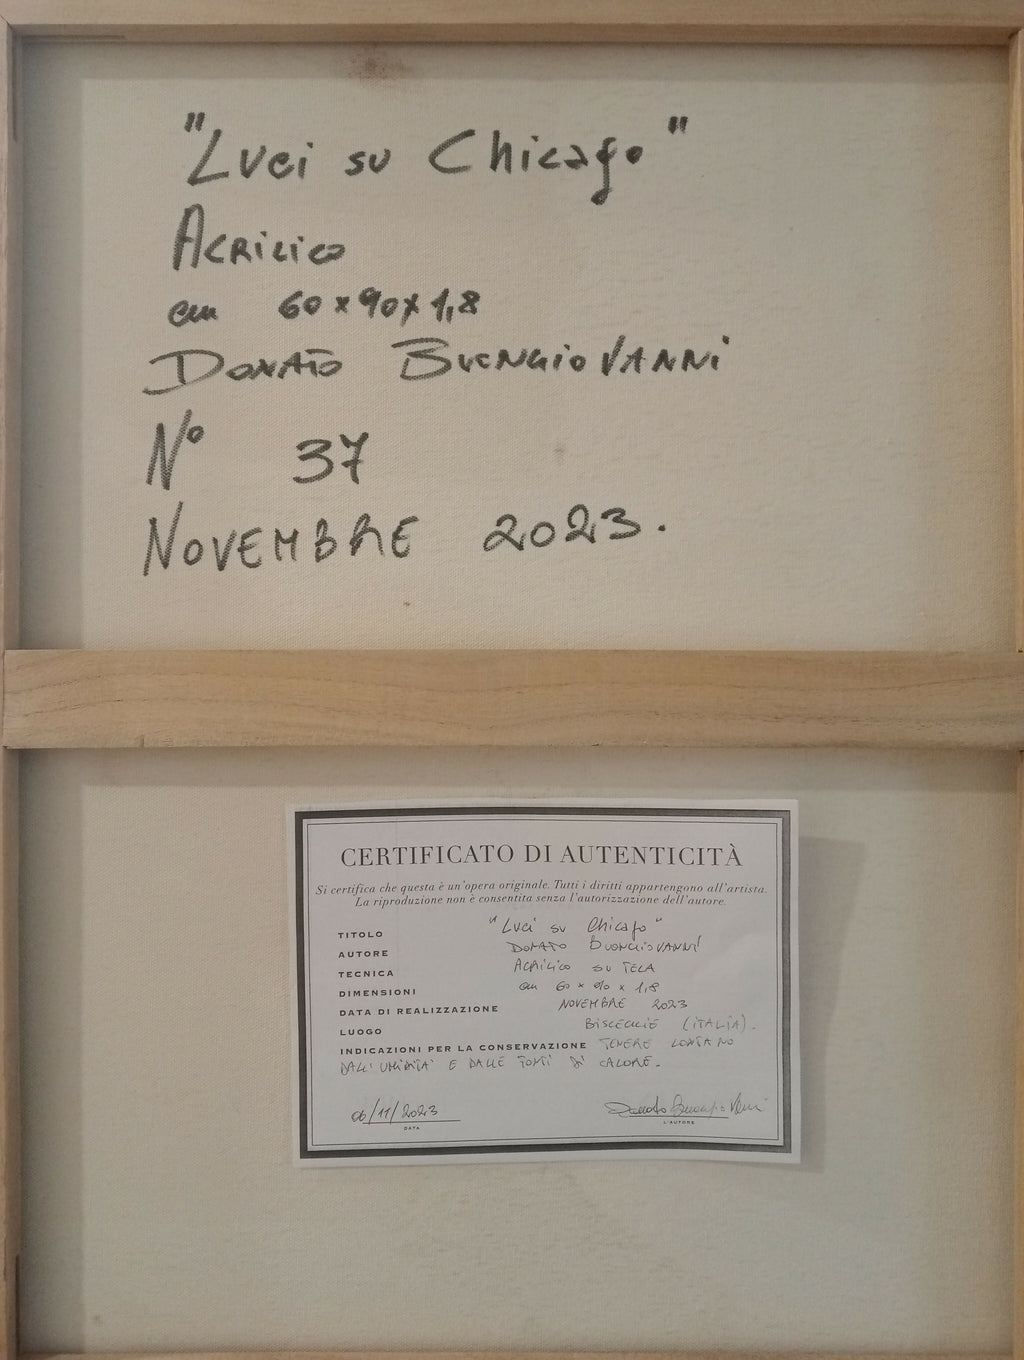 "Luci su Chicago"
ACRILICO
cm 60x90x1,8
DONATO BUONGIOVANNI
N° 37
NOVEMBRE 2023.
CERTIFICATO DI AUTENTICITÀ
Si certifica che questa è un'opera originale. Tutti i diritti appartengono all'artista.
La riproduzione non è consentita senza l'autorizzazione dell'autore.
TITOLO "Luci su Chicago"
AUTORE DONATO BUONGIOVANNI
TECNICA ACRILICO SU TELA
DIMENSIONI cm 60 x 90 x 1,8
DATA DI REALIZZAZIONE NOVEMBRE 2023
LUOGO BISCEGLIE (ITALIA).
INDICAZIONI PER LA CONSERVAZIONE TENERE LONTANO
DALL'UMIDITA' E DALLE FONTI DI CALORE.
06/11/2023 Donato Buongiovanni
DATA L'AUTORE